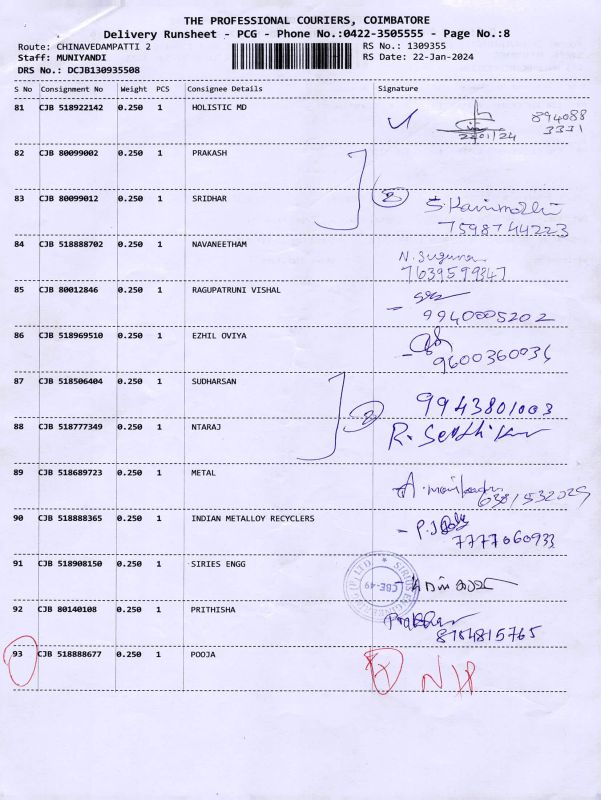 THE PROFESSIONAL COURIERS, COIMBATORE
Delivery Runsheet - PCG - Phone No.:0422-3505555 - Page No.:8
Route: CHINAVEDAMPATTI 2 RS No.: 1309355
Staff: MUNIYANDI RS Date: 22-Jan-2024
DRS No.: DCJB130935508
S No Consignment No Weight PCS Consignee Details Signature
81 CJB 518922142 0.250 1 HOLISTIC MD 894088
3331
22/01/24
82 CJB 80099002 0.250 1 PRAKASH
83 CJB 80099012 0.250 1 SRIDHAR S.Kanimozhi
7598744223
84 CJB 518888702 0.250 1 NAVANEETHAM N.Suguna
7639599847
85 CJB 80012846 0.250 1 RAGUPATRUNI VISHAL
9940005202
86 CJB 518969510 0.250 1 EZHIL OVIYA
9600360036
87 CJB 518506404 0.250 1 SUDHARSAN 9943801003
88 CJB 518777349 0.250 1 NTARAJ R. Senthil
89 CJB 518689723 0.250 1 METAL
6381532029
90 CJB 518888365 0.250 1 INDIAN METALLOY RECYCLERS
7777060933
91 CJB 518908150 0.250 1 SIRIES ENGG CBE-49
92 CJB 80140108 0.250 1 PRITHISHA
8754815765
93 CJB 518888677 0.250 1 POOJA